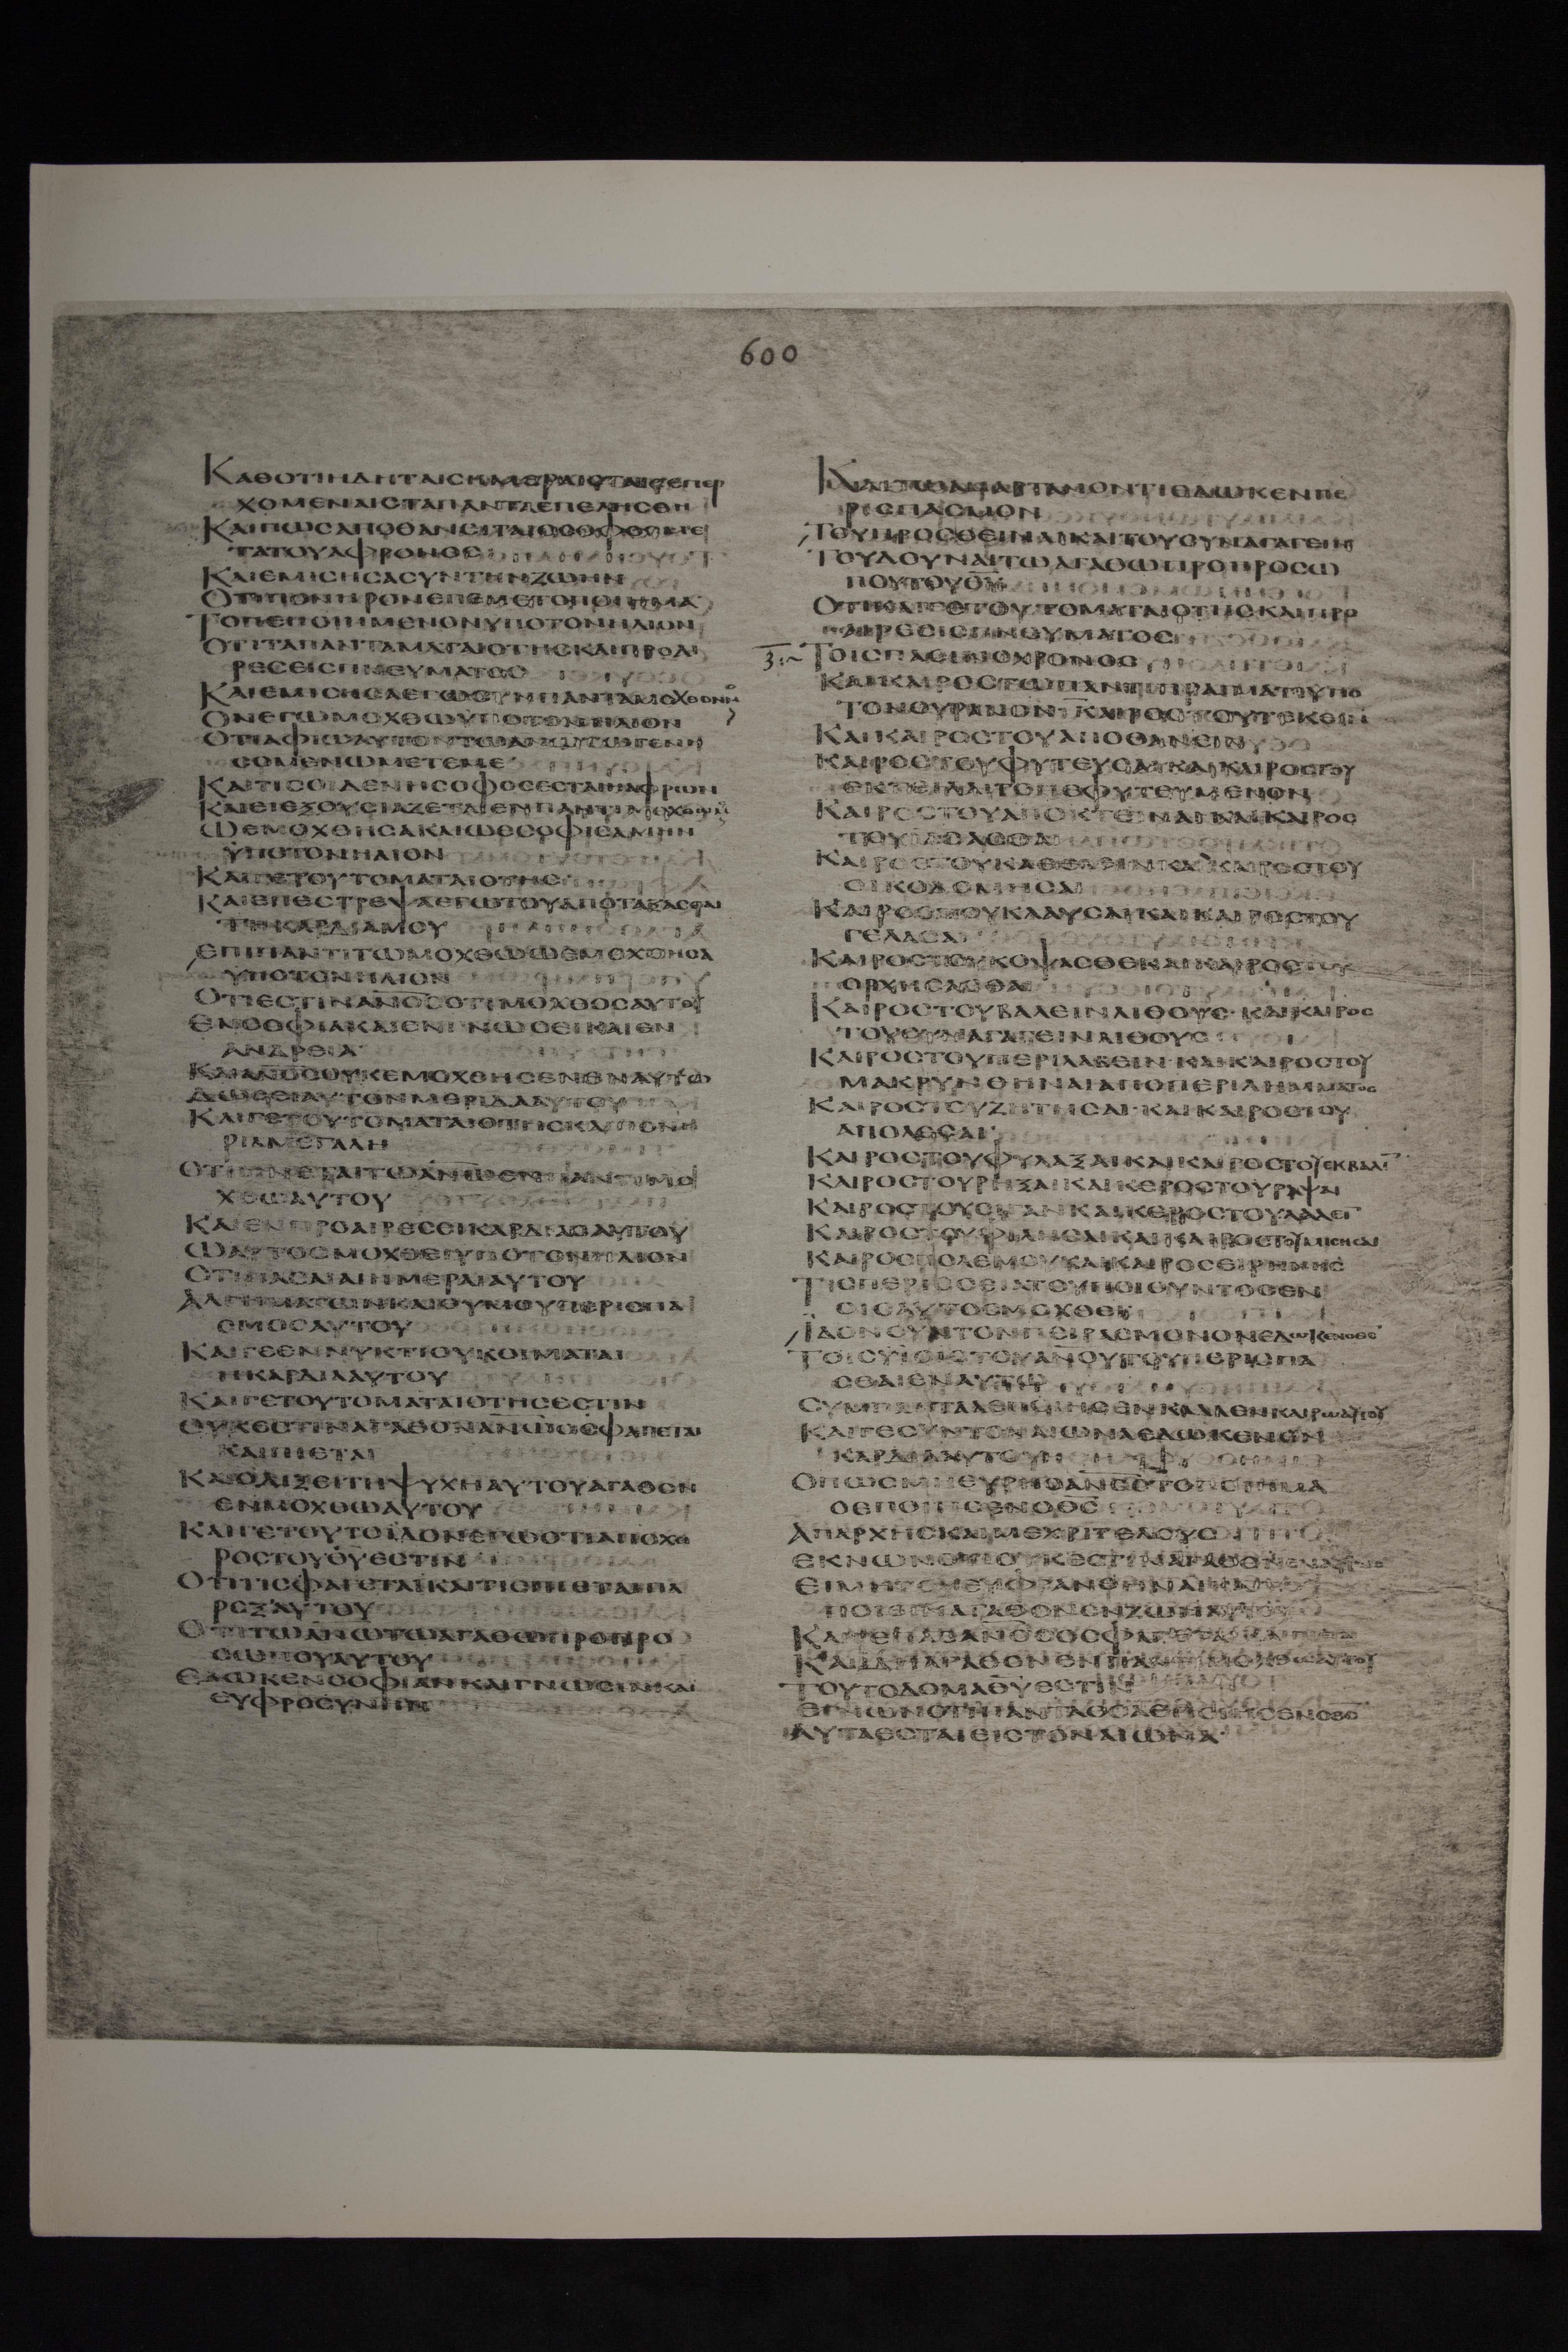 600
ΚΑΘΟΤΙΗΔΗΤΑΙСΗΜΕΡΑΙСΤΑΙСΕΠΕΡ
ΧΟΜΕΝΑΙСΤΑΠΑΝΤΑΕΠΕΛΗСΘΗ
ΚΑΙΠΩСΑΠΟΘΑΝΕΙΤΑΙΟСΟΦΟСΜΕ
ΤΑΤΟΥΑΦΡΟΝΟС
ΚΑΙΕΜΙСΗСΑСΥΝΤΗΝΖΩΗΝ
ΟΤΙΠΟΝΗΡΟΝΕΠΕΜΕΤΟΠΟΙΗΜΑ
ΤΟΠΕΠΟΙΗΜΕΝΟΝΥΠΟΤΟΝΗΛΙΟΝ
ΟΤΙΤΑΠΑΝΤΑΜΑΤΑΙΟΤΗСΚΑΙΠΡΟΑΙ
ΡΕСΕΙСΠΝΕΥΜΑΤΟС
ΚΑΙΕΜΙСΗСΑΕΓΩСΥΝΠΑΝΤΑΜΟΧΘΟΝΜ
ΟΝΕΓΩΜΟΧΘΩΫΠΟΤΟΝΗΛΙΟΝ
ΟΤΙΑΦΙΩΑΥΤΟΝΤΩΑΝΩΤΩΓΕΝΗ
СΟΜΕΝΩΜΕΤΕΜΕ
ΚΑΙΤΙС ΟΙΔΕΝΗСΟΦΟСΕСΤΑΙΗΑΦΡΩΝ
ΚΑΙΕΙΕΞΟΥСΙΑΖΕΤΑΙΕΝΠΑΝΤΙΜΟΧΘΩΜ
ΩΕΜΟΧΘΗСΑΚΑΙΩΕСΟΦΙСΑΜΗΝ
ΫΠΟΤΟΝΗΛΙΟΝ
ΚΑΙΓΕΤΟΥΤΟΜΑΤΑΙΟΤΗС
ΚΑΙΕΠΕСΤΡΕΨΑΕΓΩΤΟΥΑΠΟΤΑΞΑСΘΑΙ
ΤΗΚΑΡΔΙΑΜΟΥ
ΕΠΙΠΑΝΤΙΤΩΜΟΧΘΩΩΕΜΟΧΘΗСΑ
ΥΠΟΤΟΝΗΛΙΟΝ
ΟΤΙΕСΤΙΝΑΝΟСΟΤΙΜΟΧΘΟСΑΥΤΟΥ
ΕΝСΟΦΙΑΚΑΙΕΝΓΝΩСΕΙΚΑΙΕΝ
ΑΝΔΡΕΙΑ
ΚΑΙΑΝΟСΟΥΚΕΜΟΧΘΗСΕΝΕΝΑΥΤΩ
ΔΩСΕΙΑΥΤΟΝΜΕΡΙΔΑΑΥΤΟΥ
ΚΑΙΓΕΤΟΥΤΟΜΑΤΑΙΟΤΗСΚΑΙΠΟΝΗ
ΡΙΑΜΕΓΑΛΗ
ΟΤΙΓΙΝΕΤΑΙΤΩΑΝΩΕΝΠΑΝΤΙΜΟ
ΧΘΩΑΥΤΟΥ
ΚΑΙΕΝΠΡΟΑΙΡΕСΕΙΚΑΡΔΙΑСΑΥΤΟΥ
ΩΑΥΤΟСΜΟΧΘΕΙΥΠΟΤΟΝΗΛΙΟΝ
ΟΤΙΠΑСΑΙΑΙΗΜΕΡΑΙΑΥΤΟΥ
ΑΛΓΗΜΑΤΩΝΚΑΙΘΥΜΟΥΠΕΡΙСΠΑ
СΜΟСΑΥΤΟΥ
ΚΑΙΓΕΕΝΝΥΚΤΙΟΥΚΟΙΜΑΤΑΙ
ΗΚΑΡΔΙΑΑΥΤΟΥ
ΚΑΙΓΕΤΟΥΤΟΜΑΤΑΙΟΤΗСΕСΤΙΝ
ΟΥΚΕСΤΙΝΑΓΑΘΟΝΑΝΩΟΕΦΑΓΕΤΑΙ
ΚΑΙΠΙΕΤΑΙ
ΚΑΙΟΔΙΞΕΙΤΗΨΥΧΗΑΥΤΟΥΑΓΑΘΟΝ
ΕΝΜΟΧΘΩΑΥΤΟΥ
ΚΑΙΓΕΤΟΥΤΟΪΔΟΝΕΓΩΟΤΙΑΠΟΧΙ
ΡΟСΤΟΥΘΥΕСΤΙΝ
ΟΤΙΤΙСΦΑΓΕΤΑΙΚΑΙΤΙСΠΙΕΤΑΙΠΑ
ΡΕΞΑΥΤΟΥ
ΟΤΙΤΩΑΝΩΤΩΑΓΑΘΩΠΡΟΠΡΟ
СΩΠΟΥΑΥΤΟΥ
ΕΔΩΚΕΝСΟΦΙΑΝΚΑΙΓΝΩСΙΝΚΑΙ
ΕΥΦΡΟСΥΝΗΝ
ΚΑΙΤΩΑΜΑΡΤΑΝΟΝΤΙΕΔΩΚΕΝΠΕ
ΡΙСΠΑСΜΟΝ
ΤΟΥΠΡΟСΘΕΙΝΑΙΚΑΙΤΟΥСΥΝΑΓΑΓΕΙΝ
ΤΟΥΔΟΥΝΑΙΤΩΑΓΑΘΩΠΡΟΠΡΟСΩ
ΠΟΥΤΟΥΘΥ
ΟΤΙΚΑΙΓΕΤΟΥΤΟΜΑΤΑΙΟΤΗСΚΑΙΠΡΟ
ΑΙΡΕСΕΙСΠΝΕΥΜΑΤΟС
ΤΟΙСΠΑСΙΝΟΧΡΟΝΟС
ΚΑΙΚΑΙΡΟСΤΩΠΑΝΤΙΠΡΑΓΜΑΤΙΥΠΟ
ΤΟΝΟΥΡΑΝΟΝΚΑΙΡΟСΤΟΥΤΕΚΕΙΝ
ΚΑΙΚΑΙΡΟСΤΟΥΑΠΟΘΑΝΕΙΝ
ΚΑΙΡΟСΤΟΥΦΥΤΕΥСΑΙΚΑΙΚΑΙΡΟСΤΟΥ
ΕΚΤΕΙΛΑΙΤΟΠΕΦΥΤΕΥΜΕΝΟΝ
ΚΑΙΡΟСΤΟΥΑΠΟΚΤΕΙΝΑΙΚΑΙΚΑΙΡΟС
ΤΟΥΙΑСΑСΘΑΙ
ΚΑΙΡΟСΤΟΥΚΑΘΕΛΕΙΝΚΑΙΚΑΙΡΟСΤΟΥ
ΟΙΚΟΔΟΜΗСΑΙ
ΚΑΙΡΟСΤΟΥΚΛΑΥСΑΙΚΑΙΚΑΙΡΟСΤΟΥ
ΓΕΛΑСΑΙ
ΚΑΙΡΟСΤΟΥΚΟΨΑСΘΕΚΑΙΚΑΙΡΟСΤΟΥ
ΟΡΧΗСΑСΘΑΙ
ΚΑΙΡΟСΤΟΥΒΑΛΕΙΝΛΙΘΟΥСΚΑΙΚΑΙΡΟС
ΤΟΥСΥΝΑΓΑΓΕΙΝΛΙΘΟΥС
ΚΑΙΡΟСΤΟΥΠΕΡΙΛΑΒΕΙΝΚΑΙΚΑΙΡΟСΤΟΥ
ΜΑΚΡΥΝΘΗΝΑΙΑΠΟΠΕΡΙΛΗΜΜΑΤΟС
ΚΑΙΡΟСΤΟΥΖΗΤΗСΑΙΚΑΙΚΑΙΡΟСΤΟΥ
ΑΠΟΛΕСΑΙ
ΚΑΙΡΟСΤΟΥΦΥΛΑΞΑΙΚΑΙΚΑΙΡΟСΤΟΥΕΚΒΑΛΙ
ΚΑΙΡΟСΤΟΥΡΗΞΑΙΚΑΙΚΕΡΟСΤΟΥΡΑΨΑΙ
ΚΑΙΡΟСΤΟΥСΙΓΑΝΚΑΙΚΕΡΟСΤΟΥΛΑΛΕΙ
ΚΑΙΡΟСΤΟΥΦΙΛΗСΑΙΚΑΙΚΑΙΡΟСΤΟΥΜΙСΗСΑΙ
ΚΑΙΡΟСΠΟΛΕΜΟΥΚΑΙΚΑΙΡΟСΕΙΡΗΝΗС
ΤΙСΠΕΡΙССΕΙΑΤΟΥΠΟΙΟΥΝΤΟСΕΝ
ΟΙСΑΥΤΟСΜΟΧΘΕΙ
ΪΔΟΝСΥΝΤΟΝΠΕΙΡΑСΜΟΝΟΝΕΔΩΚΕΝΟΘС
ΤΟΙСΥΪΟΙСΤΟΥΑΝΟΥΤΟΥΠΕΡΙСΠΑ
СΘΑΙΕΝΑΥΤΩ
СΥΜΠΑΝΤΑΑΕΠΟΙΗСΕΝΚΑΛΑΕΝΚΑΙΡΩΑΥΤΟΥ
ΚΑΙΓΕСΥΝΤΟΝΑΙΩΝΑΕΔΩΚΕΝΕΝ
ΚΑΡΔΙΑΑΥΤΟΥ
ΟΠΩСΜΗΕΥΡΗΟΑΝΟСΤΟΠΟΙΗΜΑ
ΟΕΠΟΙΗСΕΝΟΘС
ΑΠΑΡΧΗСΚΑΙΜΕΧΡΙΤΕΛΟΥС
ΕΙΜΗΤΟΥΕΥΦΡΑΝΘΗΝΑΙΚΑΙ
ΠΟΙΕΙΝΑΓΑΘΟΝΕΝΖΩΗΑΥΤΟΥ
ΤΟΥΤΟΔΟΜΑΘΥΕСΤΙΝ
ΑΥΤΑΕСΤΑΙΕΙСΤΟΝΑΙΩΝΑ